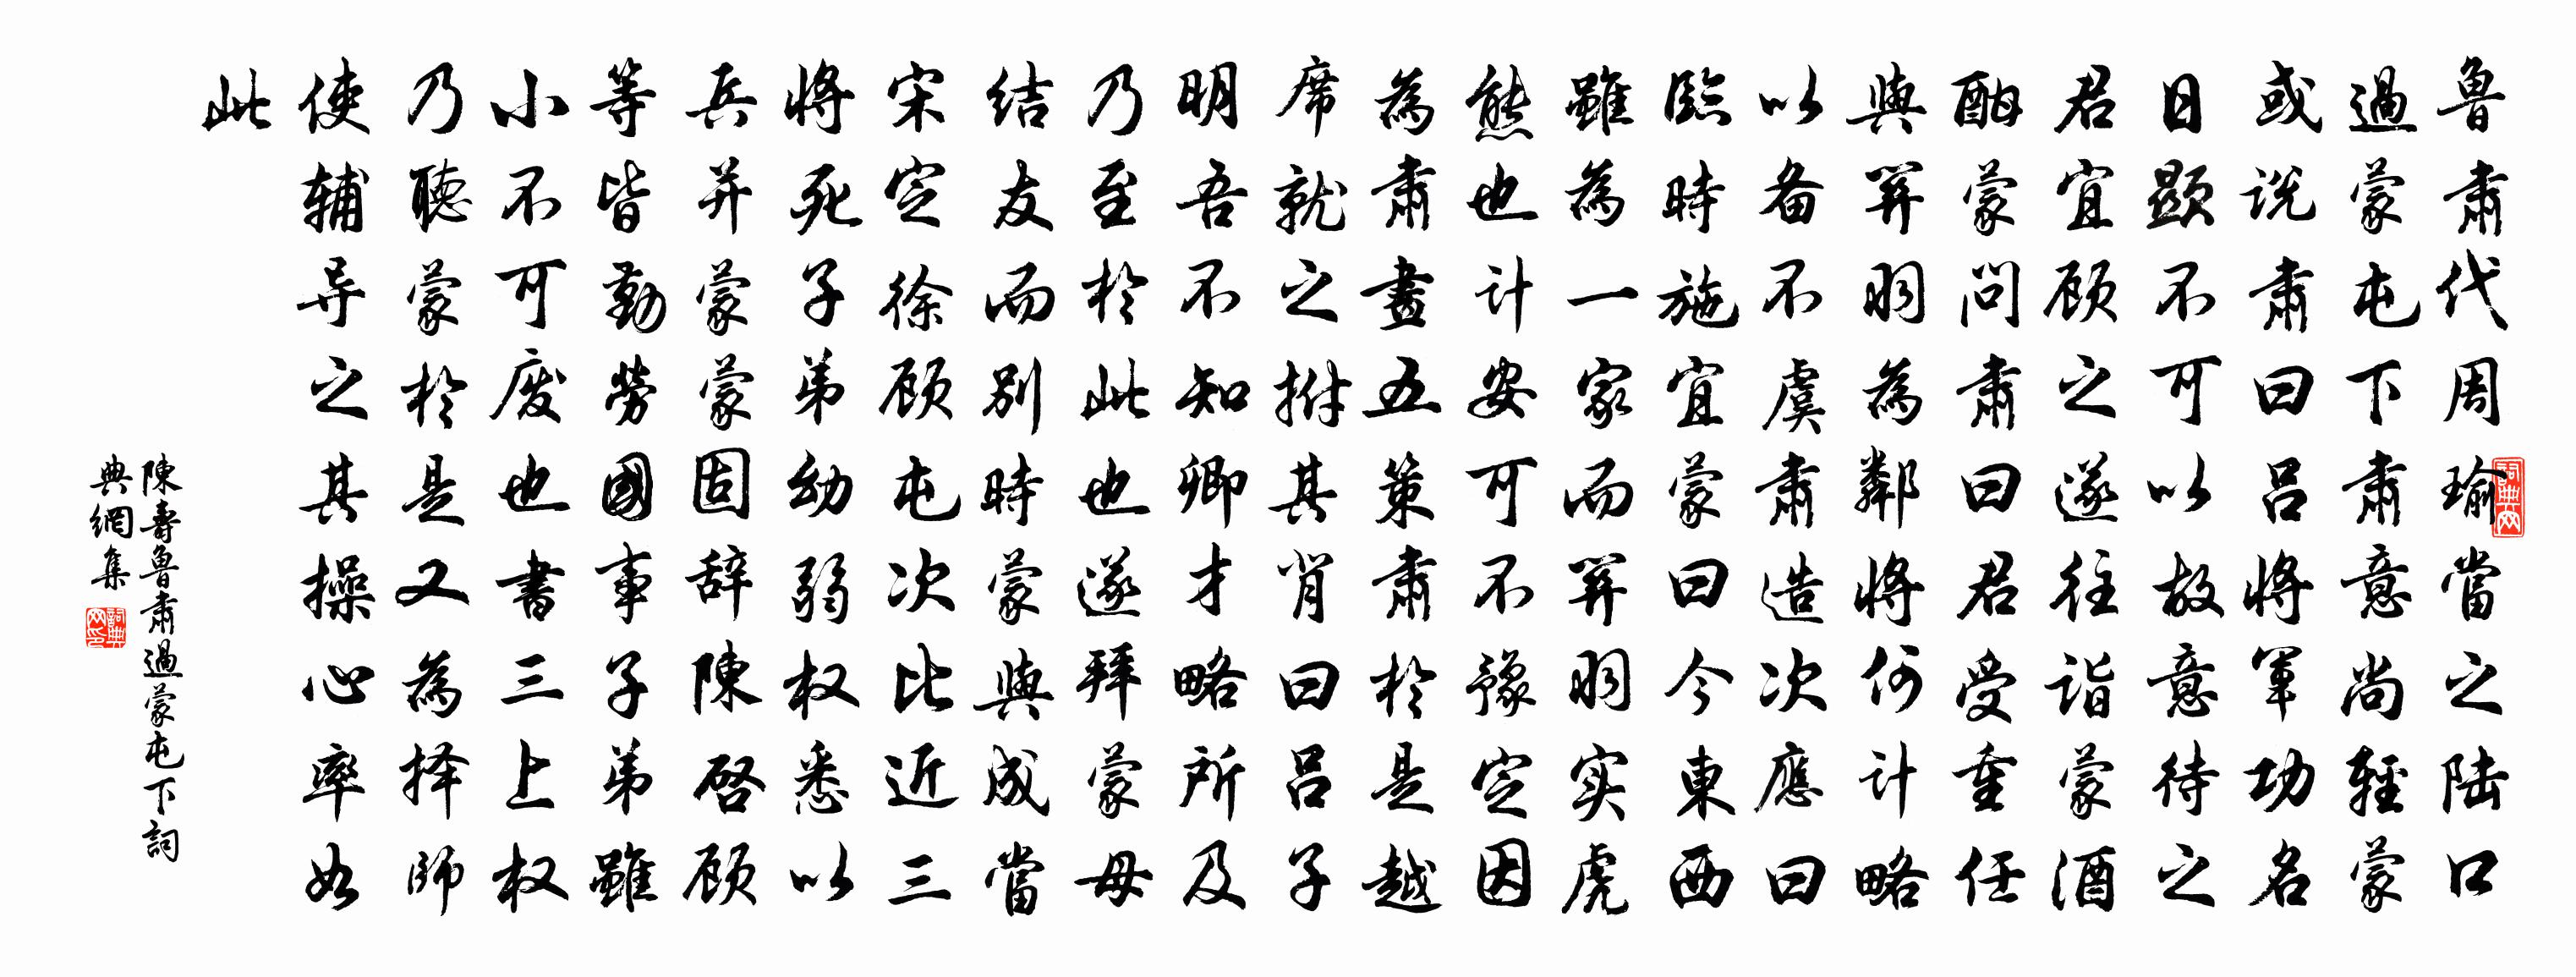 魯肅代周瑜當之陆口
過蒙屯下肅意尚輕蒙
或说肅曰吕将軍功名
日顯不可以故意待之
君宜顾之遂往诣蒙酒
酣蒙問肅曰君受重任
與關羽為鄰将何计略
以备不虞肅造次應曰
臨時施宜蒙曰今東西
雖為一家而關羽实虎
熊也计安可不豫定因
為肅畫五策肅於是越
席就之拊其背曰吕子
明吾不知卿才略所及
乃至於此也遂拜蒙母
结友而别時蒙與成當
宋定徐顾屯次比近三
將死子弟幼弱权悉以
兵并蒙蒙固辞陳啓顾
等皆勤勞國事子弟雖
小不可废也書三上权
乃聽蒙於是又為择師
使辅导之其操心率如
此
陳壽魯肅過蒙屯下詞
典網集